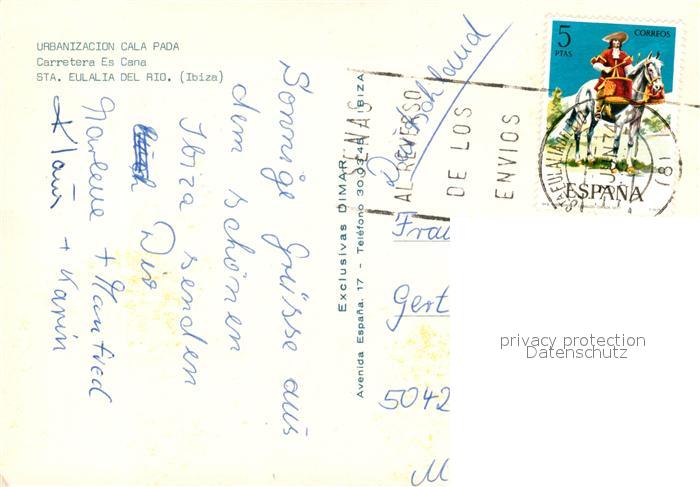 URBANIZACION CALA PADA
Carretera Es Cana
STA. EULALIA DEL RIO. (Ibiza)
Sonnige Grüsse aus
dem schönen
Ibiza senden
Dir
Marlene + Manfred
Klaus + Karin
Exclusivas DIMAR
Avenida España. 17 - Teléfono 30.03.45 - IBIZA
Deutschland
SEÑAS
AL REVERSO
DE LOS
ENVIOS
5 PTAS
CORREOS
ESPAÑA
STA EULALIA
Frau
Gert
5042
M
privacy protection
Datenschutz